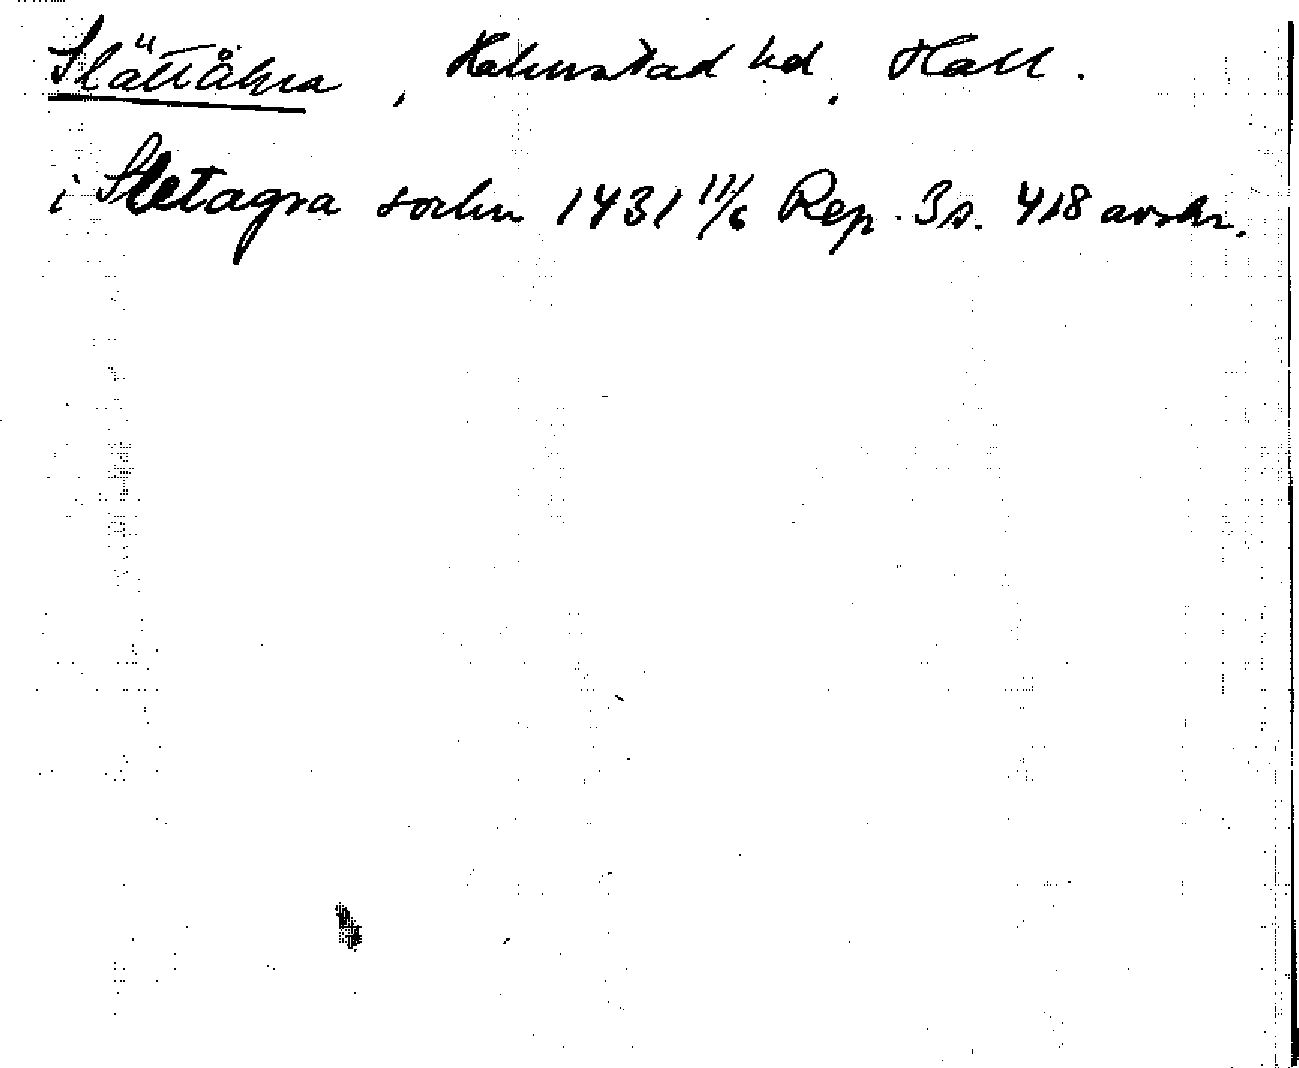 Slättåkra, Halmstad hd, Hall.
i Sletagra sochn 1431 11/6 Rep. 3 s. 418 avskr.